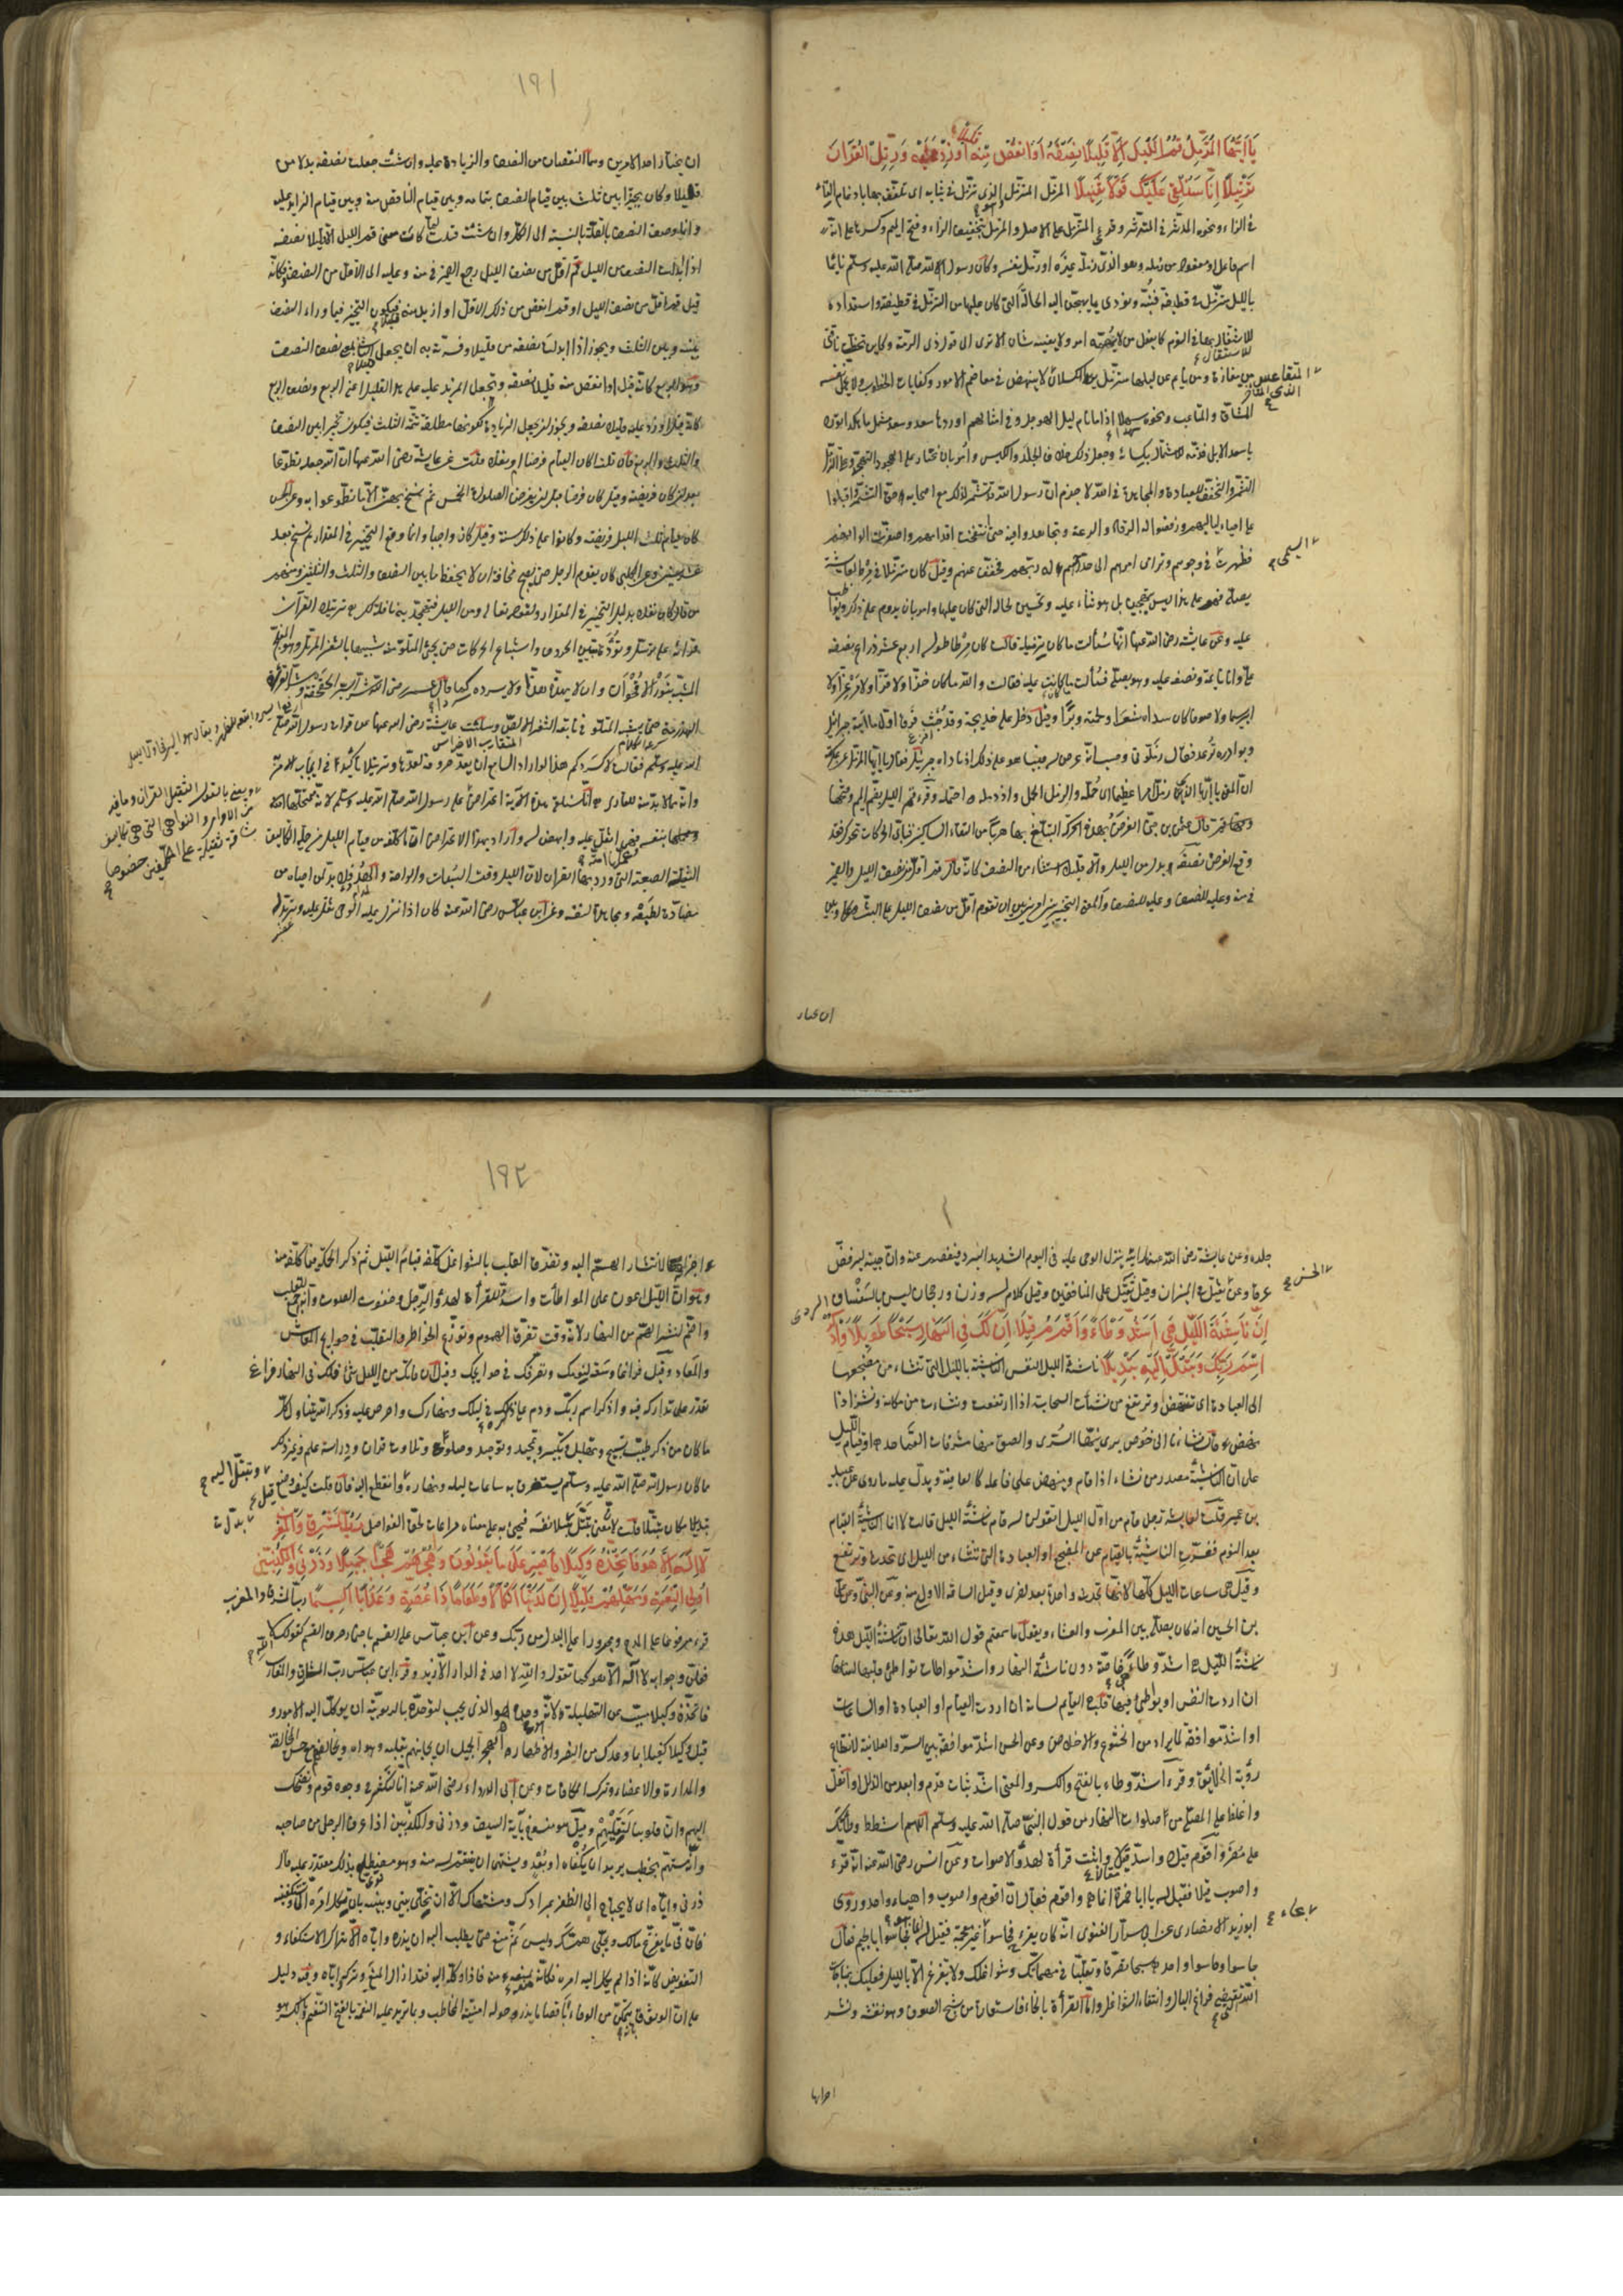 يا ايها المزمل قم الليل الا قليلا نصفه او انقص منه قليلا او زد عليه ورتل القرآن
ترتيلا انا سنلقي عليك قولا ثقيلا المزمل المتزمل وهو الذي تزمل في ثيابه اى تلفف بها بادغام التاء
في الزاء ونحوه المدثر في المتدثر وقرئ المتزمل على الاصل والمزمل بتخفيف الزاء وفتح الميم وكسرها على انه
اسم فاعل او مفعول من زمله وهو الذى زمله غيره او زمل نفسه وكان رسول الله صلى الله عليه وسلم نائما
بالليل متزملا في قطيفة فنبه ونودى بما يهجن اليه الحالة التى كان عليها من التزمل في قطيفته واستعداده
للاستثقال في النوم كما يفعل من لا يهمه امر ولا يعنيه شان الا ترى الى قول ذى الرمة وكاين تخطت ناقتى
من مفازة ومن نائم عن ليلها متزمل يريد الكسلان المتقاعس الذى لا ينهض في معاظم الامور وكفايات الخطوب ولا يحمل نفسه
المشاق والمتاعب ونحوه سهدا اذا ما نام ليل الهوجل وفي امثالهم اوردها سعد وسعد مشتمل ما هكذا تورد
يا سعد الابل فذمه بالاشتمال بكسائه وجعل ذلك خلاف الجلد والكيس وأمر بان يختار على الهجود التهجد وعلى التزمل
التشمر والتخفف للعبادة والمجاهدة في الله لا جرم ان رسول الله قد تشمر لذلك مع اصحابه حق التشمر واقبلوا
على احياء لياليهم ورفضوا له الرقاد والدعة وتجاهدوا فيه حتى انتفخت اقدامهم واصفرت الوانهم
السيمى
فظهرت في وجوههم وترامى امرهم الى حد رحمهم له ربهم فخفف عنهم وقيل كان متزملا في مرط لعايشة
يصلى فهو على هذا ليس بتهجين بل هو ثناء عليه وتحسين لحاله التى كان عليها وامر بان يدوم على ذلك ويواظب
عليه وعن عايشة رضى الله عنها انها سئلت ما كان تزميله قالت كان مرطا طوله اربع عشر ذراعا نصفه
علي وانا نائمة ونصفه عليه وهو يصلى فسئلت ما كان فقالت والله ما كان خزا ولا قزا ولا مرعزا ولا
ابريسما ولا صوفا كان سداه شعرا ولحمته وبرا وقيل دخل على خديجة وقد جئث فرقا اول ما اتاه جبرائيل
وبوادره ترعد فقال زملونى وحسب انه عرض له فبينا هو على ذلك اذ ناداه جبريل فقال يا ايها المزمل وعن عكرمة
ان المعنى يا ايها الذى زمل امرا عظيما اى حمله والزمل الحمل وازدمله احتمله وقرئ قم الليل بضم الميم وفتحها
قال عثمن بن جنى الغرض بهذه الحركة التبلغ بها هربا من التقاء الساكنين فباى الحركات تحرك فقد
وقع الغرض نصفه بدل من الليل والا قليلا استثناء من النصف كانه قال قم اقل من نصف الليل والضمير
في منه وعليه للنصف والمعنى التخيير بين امرين بين ان تقوم اقل من نصف الليل على البت وبين
ان يختار
١٩١
ان يختار احد الامرين وهما النقصان من النصف والزيادة عليه وان شئت جعلت نصفه بدلا من
قليلا وكان تخييرا بين ثلث بين قيام النصف بتمامه وبين قيام الناقص منه وبين قيام الزايد عليه
وانما وصف النصف بالقلة بالنسبة الى الكل وان شئت قلت لما كان معنى قم الليل الا قليلا نصفه
اذا ابدلت النصف من الليل قم اقل من نصف الليل رجع الضمير في منه وعليه الى الاقل من النصف فكانه
قيل قم اقل من نصف الليل او قم انقص من ذلك الاقل او ازيد منه قليلا فيكون التخيير فيما وراء النصف
بينه وبين الثلث ويجوز اذا ابدلت نصفه من قليلا وفسرته به ان يجعل قليلا الثانى بمعنى نصف النصف
وهو الربع كانه قيل او انقص منه قليلا نصفه وتجعل المزيد عليه على هذا القليل اعنى الربع ونصف الربع
كانه قيل او زد عليه قليلا نصفه ويجوز ان يجعل الزيادة لكونها مطلقة تتمة الثلث فيكون تخييرا بين النصف
والثلث والربع فان قلت اكان القيام فرضا ام نفلا قلت عن عايشة رضى الله عنها ان الله جعله تطوعا
بعد ان كان فريضة وقيل كان فرضا قبل ان يفرض الصلوات الخمس ثم نسخ بهن الا ما تطوعوا به وعن الحسن
كان قيام ثلث الليل فريضة وكانوا على ذلك سنة وقيل كان واجبا وانما وقع التخيير في المقدار ثم نسخ بعد
عشر سنين وعن الكلبى كان يقوم الرجل حتى يصبح مخافة ان لا يحفظ ما بين النصف والثلث والثلثين ومنهم
من قال كان نفلا بدليل التخيير في المقدار ولقوله تعالى ومن الليل فتهجد به نافلة لك ترتيل القرآن
قراءته على ترسل وتؤدة بتبيين الحروف واشباع الحركات حتى يجئ المتلو منه شبيها بالثغر المرتل وهو المفلج
المشبه بنور الاقحوان وان لا يهذه هذا ولا يسرده سردا كما قال عمر رضى الله عنه شر السير الحقحقة وشر القراءة
الهذرمة حتى يشبه المتلو في تتابعه الثغر الالص وسئلت عايشة رضى الله عنها عن قراءة رسول الله صلى
الله عليه وسلم فقالت لا كسردكم هذا لو اراد السامع ان يعد حروفه لعدها وترتيلا تأكيد في ايجاب الامر
وانه مما لا بد منه للقارى انا سنلقى هذه الآية اعتراض
على رسول الله صلى الله عليه وسلم لانه متحملها
بنفسه فهى اثقل عليه وابهض له واراد بهذا الاعتراض ان ما كلفه من قيام الليل من جملة التكاليف
الثقيلة الصعبة التى ورد بها القران لان الليل وقت السبات والراحة والهدو فلا بد لمن احياه من
مضادة لطبعه ومجاهدة لنفسه وعن ابن عباس رضى الله عنه كان اذا نزل عليه الوحى ثقل عليه وتربد له
ويعنى بالقول الثقيل القران وما فيه
من الاوامر والنواهى التى هى تكاليف
شاقة ثقيلة على المكلفين خصوصا
جلده وعن عايشة رضى الله عنها رايته ينزل الوحى عليه في اليوم الشديد البرد فيفصم عنه وان جبينه ليرفض
الحسن
عرقا وعن ثقيل في الميزان وقيل ثقيل على المنافقين وقيل كلام له وزن ورجحان ليس بالسفساف
ان ناشئة الليل هى اشد وطاء واقوم قيلا ان لك في النهار سبحا طويلا واذكر
اسم ربك وتبتل اليه تبتيلا ناشئة الليل النفس الناشئة بالليل التى تنشاء من مضجعها
الى العبادة اى تنهض وترتفع من نشأت السحابة اذا ارتفعت ونشاء من مكانه ونشز اذا
نهض قال نشأنا الى خوص برى نيها السرى والصق منها مشرفات القماحد او قيام الليل
على ان الناشئة مصدر من نشاء اذا قام ونهض على فاعلة كالعافية ويدل عليه ما روى عن عبيد
بن عمير قلت لعايشة رجل قام من اول الليل اتقولين له قام ناشئة الليل قالت لا انما الناشئة القيام
بعد النوم ففسرت الناشئة بالقيام عن المضجع او العبادة التى تنشاء من الليل اى تحدث وترتفع
وقيل هى ساعات الليل كلها لانها تحدث واحدة بعد اخرى وقيل الساعات الاول منه وعن على
بن الحسين انه كان يصلى بين المغرب والعشاء ويقول اما سمعتم قول الله تعالى ان ناشئة الليل هذه
ناشئة الليل هى اشد وطاء خاصة دون ناشئة النهار واشد مواطاة تواطئ قلبها لسانها
ان اردت النفس او يواطئ فيها قلب القايم لسانه ان اردت القيام او العبادة او الساعات
او اشد موافقة لما يراد من الخشوع والاخلاص وعن الحسن اشد موافقة بين السر والعلانية لانقطاع
رؤية الخلائق وقرئ اشد وطاء بالفتح والكسر والمعنى اشد ثبات قدم وابعد من الزلل او اثقل
واغلظ على المصلى من صلوات النهار من قول النبى صلى الله عليه وسلم اللهم اشدد وطاتك
على مضر واقوم قيلا واسد مقالا واثبت قرأة لهدو الاصوات وعن انس رضى الله عنه انه قرأ
واصوب قيلا فقيل له يا ابا حمزة انما هى واقوم فقال ان اقوم واصوب واهيا واحد وروى
ابو زيد الانصارى عن ابى سرار الغنوى انه كان يقرأ فحاسوا بحاء غير معجمة فقيل له انما هو فجاسوا بالجيم فقال
جاسوا وحاسوا واحد سبحا تصرفا وتقلبا في مهماتك وشواغلك ولا تفرغ الا بالليل فعليك بمناجاة
الله التى تقتضى فراغ البال وانتفاء الشواغل واما القرأة بالخاء فاستعارة من سبخ الصوف وهو نفشه ونشر
اجزايه
١٩٢
اجزائه لانتشار الهم اليه وتفرق القلب بالشواغل كلفه قيام الليل ثم ذكر الحكمة فيما كلفه منه
وهو ان الليل اعون على المواطأة واشد للقرأة لهدو الرجل وخفوت الصوت وانه اجمع للقلب
واضم لنشر الهم من النهار لانه وقت تفرق الهموم وتوزع الخواطر والتقلب في حوايج المعاش
والمعاد وقيل فراغا وسعة لنومك وتصرفك في حوايجك وقيل ان فاتك من الليل شئ فلك في النهار فراغ
تقدر على تداركه فيه واذكر اسم ربك ودم على ذكره في ليلك ونهارك واحرص عليه وذكر الله يتناول كل
ما كان من ذكر طيب تسبيح وتهليل وتكبير وتمجيد وتوحيد وصلوة وتلاوت قران ودراسة علم وغير ذلك
ما كان رسول الله صلى الله عليه وسلم يستغرق به ساعات ليله ونهاره وتبتل اليه وانقطع اليه فان قلت كيف قيل
تبتيلا مكان تبتلا قلت لان معنى تبتل بتل نفسه فجئ به على معناه مراعات لحق الفواصل رب المشرق والمغرب
لا اله الا هو فاتخذه وكيلا واصبر على ما يقولون واهجرهم هجرا جميلا وذرنى والمكذبين
اولى النعمة ومهلهم قليلا ان لدينا انكالا وجحيما وطعاما ذا غصة وعذابا اليما رب المشرق والمغرب
قرئ مرفوعا على المدح ومجرورا على البدل من ربك وعن ابن عباس على القسم باضمار حرف القسم كقولك الله
لافعلن وجوابه لا اله الا هو كما تقول والله لا احد في الدار الا زيد وقرء ابن عباس رب المشارق والمغارب
فاتخذه وكيلا مسبب عن التهليلة لانه هو وحده هو الذى يجب لتوحده بالربوبية ان يوكل اليه الامور و
قيل وكيلا كفيلا بما وعدك من النصر والاظهار الهجر الجميل ان يجانبهم بقلبه وهواه ويخالفهم مع حسن المخالقة
والمداراة والاغضاء وترك المكافات وعن ابى الدرداء رضى الله عنه انا لنكشر في وجوه قوم ونضحك
اليهم وان قلوبنا لتقليهم وقيل هو منسوخ بآية السيف وذرنى والمكذبين اذا عرف الرجل من صاحبه
انه مستهم بخطب يريد ان يكفاه او بعدو يشتهى ان ينتقم له منه وهو مضطلع بذلك مقتدر عليه قال
ذرنى واياه اى لا تحتاج الى الظفر بمرادك ومشتهاك الا ان تخلى بينى وبينه بان تكل امره الى وتستكفينيه
فان في ما يفرغ بالك ويجلى همك وليس ثم منع حتى يطلب اليه ان يذره واياه الا ترك الاستكفاء و
التفويض كانه اذا لم يكل اليه امره فكانه منعه منه فاذا وكله اليه فقد ازال المنع وتركه واياه وفيه دليل
على ان الوثوق بانه يتمكن من الوفاء باقصى ما يدور حوله امنية المخاطب وبما يزيد عليه النعمة بالفتح التنعم وبالكسر